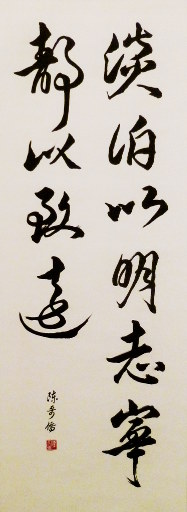 淡泊以明志寧
靜以致遠
陳奇儒